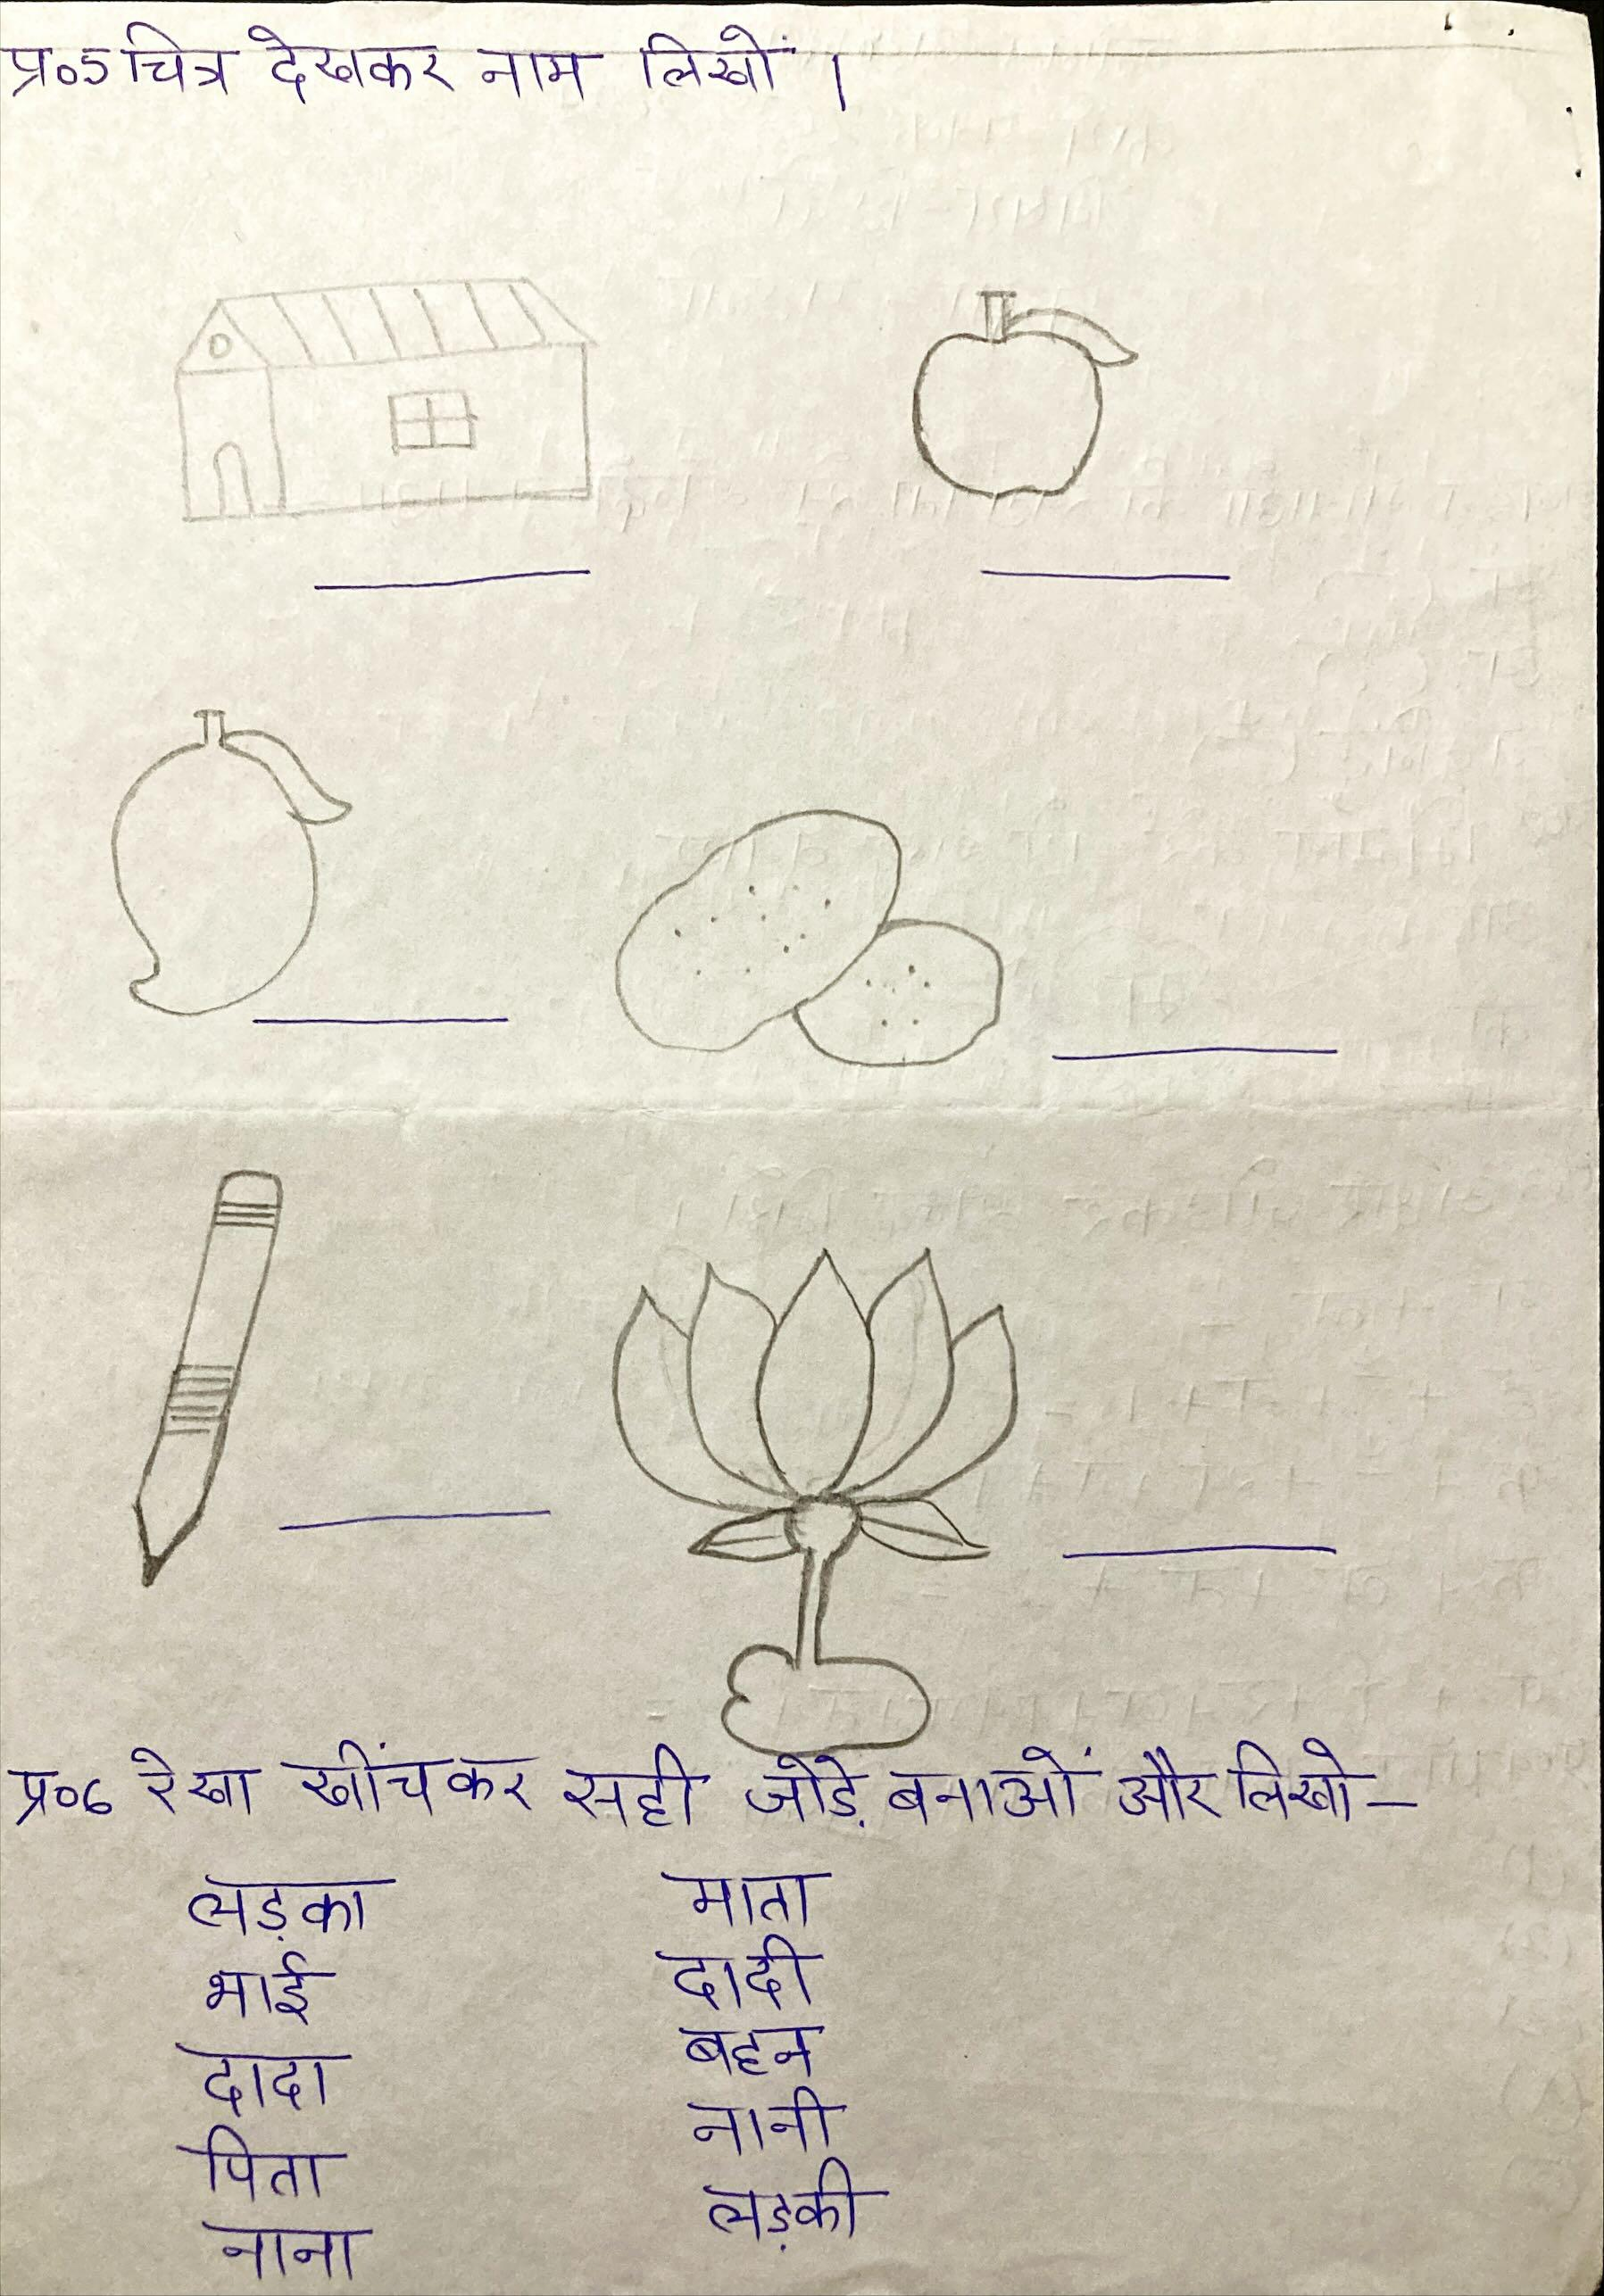 प्र०5 चित्र देखकर नाम लिखों ।
प्र०6 रेखा खींचकर सही जोड़े बनाओं और लिखो –
लड़का माता
भाई दादी
दादा बहन
पिता नानी
नाना लड़की